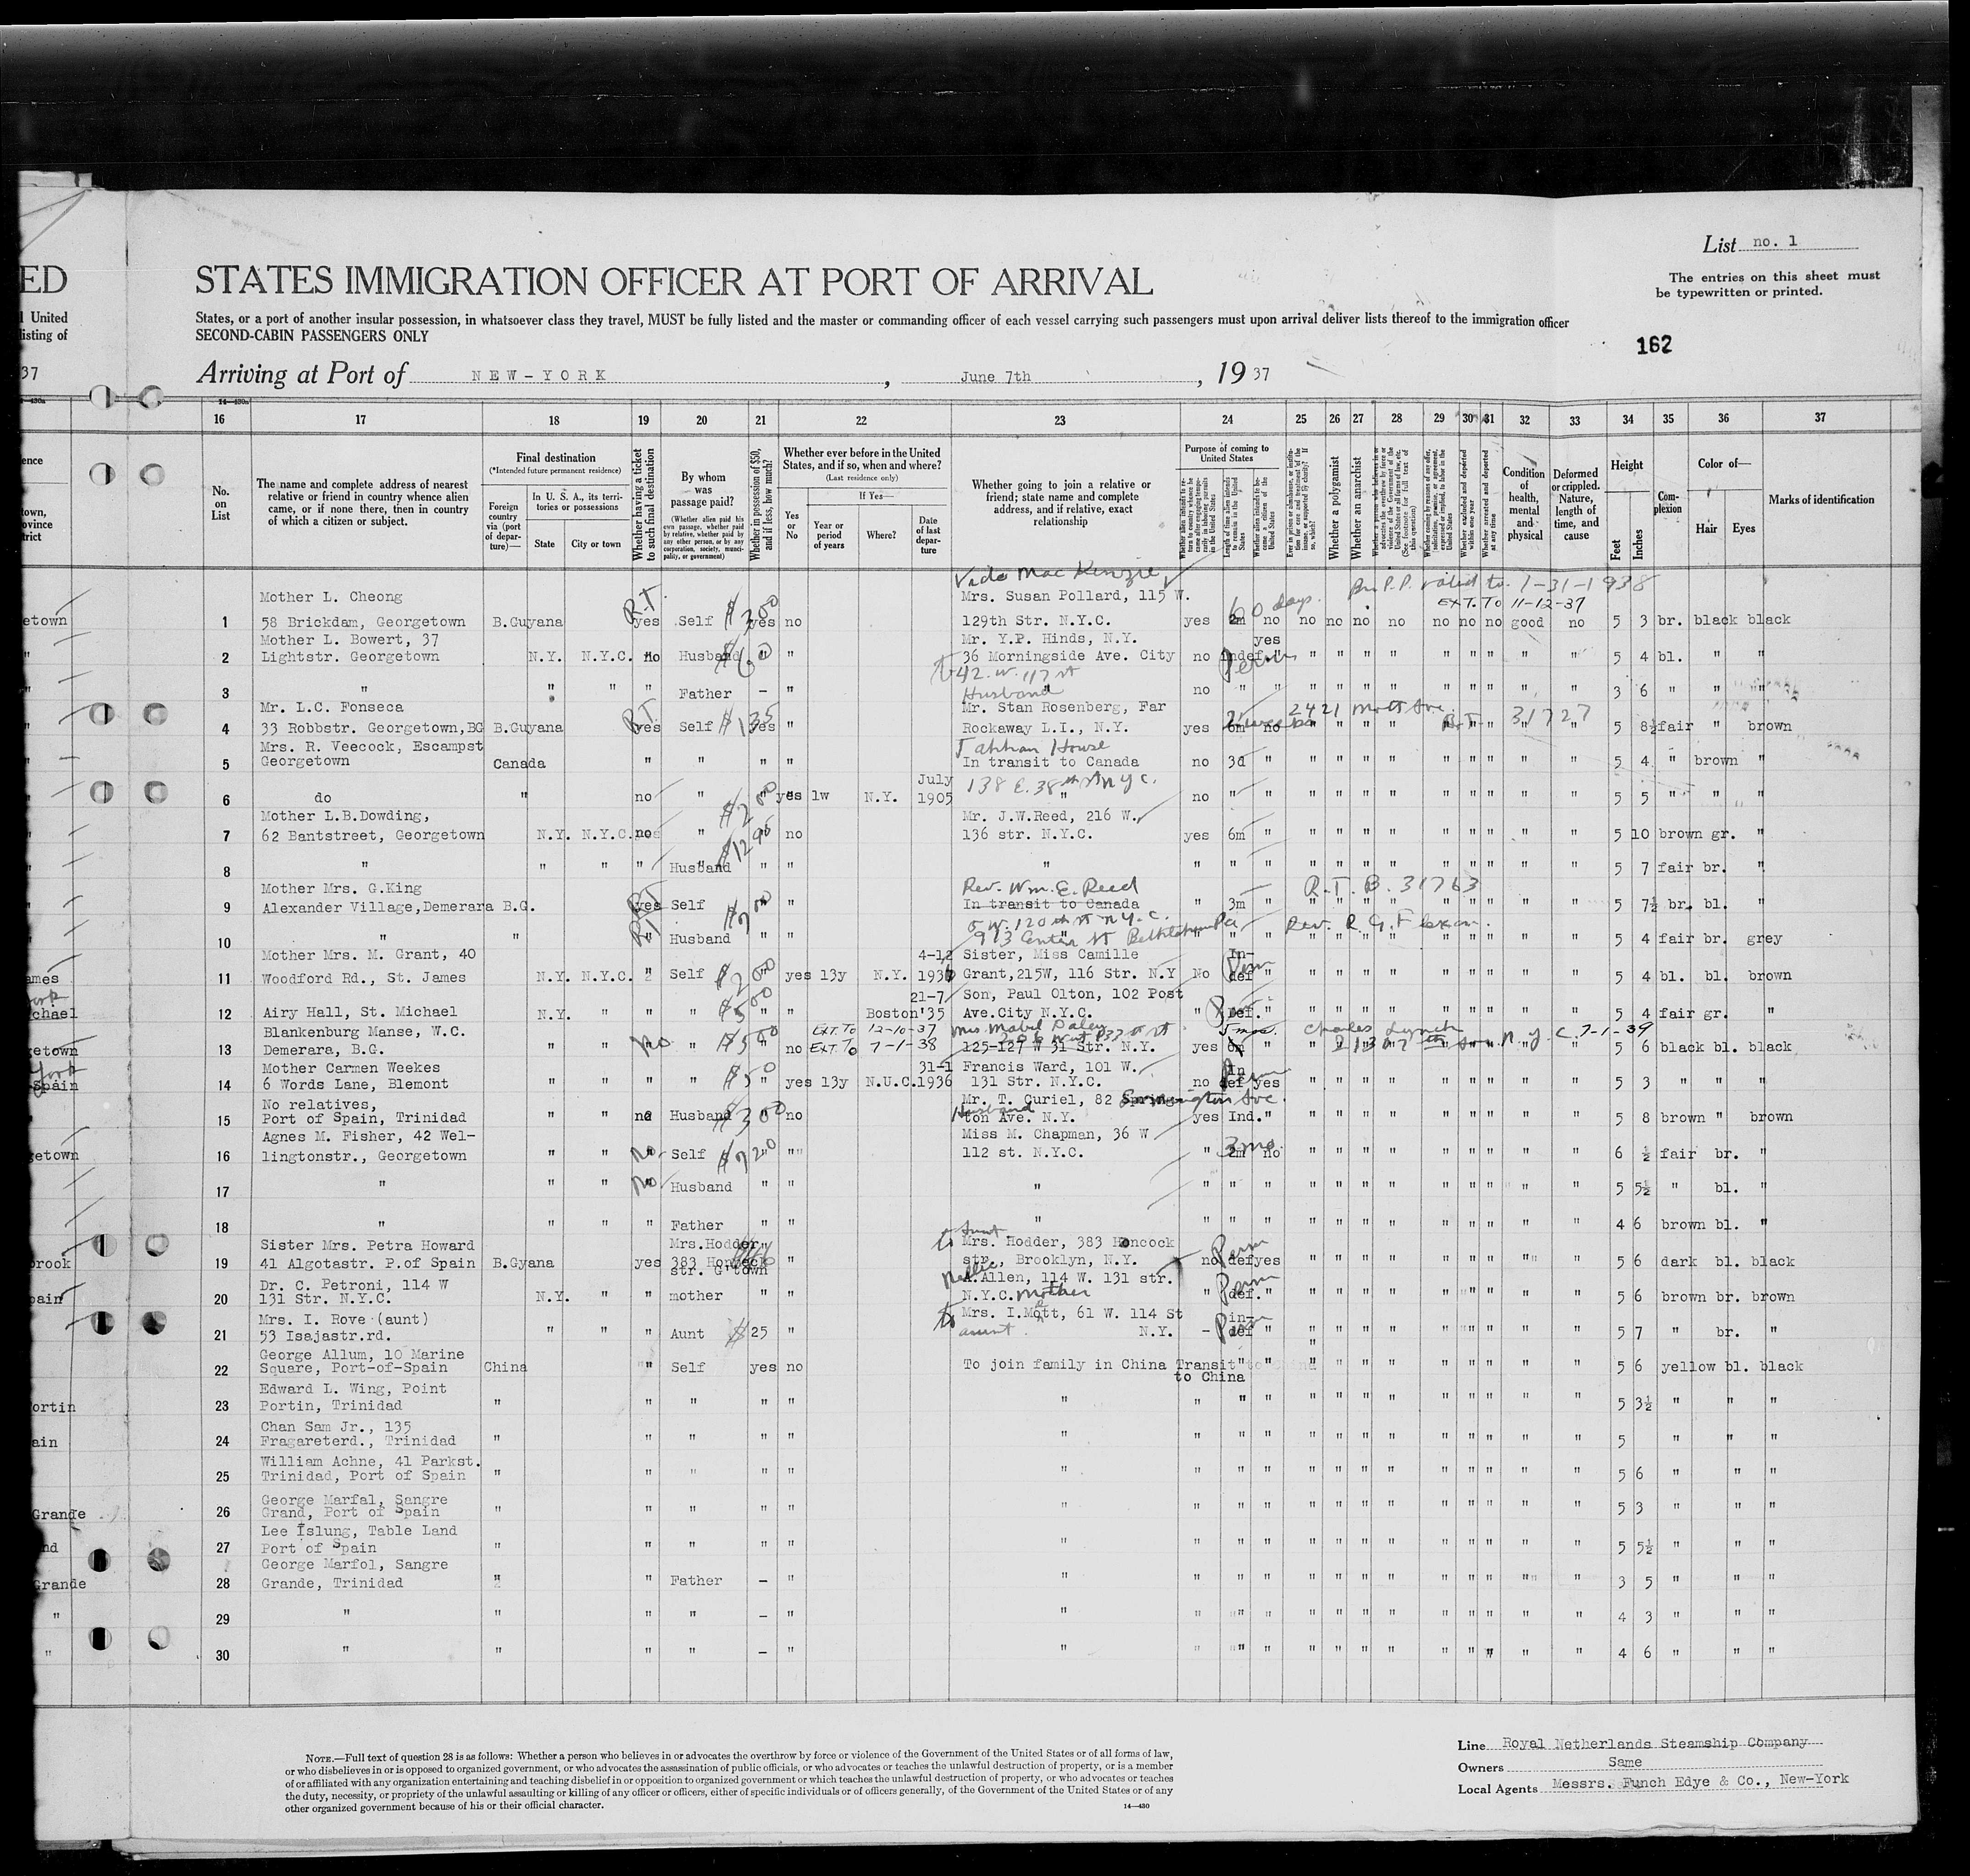 List no. 1
ED STATES IMMIGRATION OFFICER AT PORT OF ARRIVAL
The entries on this sheet must
be typewritten or printed.
l United States, or a port of another insular possession, in whatsoever class they travel, MUST be fully listed and the master or commanding officer of each vessel carrying such passengers must upon arrival deliver lists thereof to the immigration officer
listing of SECOND-CABIN PASSENGERS ONLY
162
37 Arriving at Port of NEW-YORK, June 7th, 19 37
16 17 18 19 20 21 22 23 24 25 26 27 28 29 30 31 32 33 34 35 36 37
No. on List
The name and complete address of nearest relative or friend in country whence alien came, or if none there, then in country of which a citizen or subject.
Final destination
(*Intended future permanent residence)
Foreign country via (port of departure)—
In U. S. A., its territories or possessions
State City or town
Whether having a ticket to such final destination
By whom was passage paid?
(Whether alien paid his own passage, whether paid by relative, whether paid by any other person, or by any corporation, society, municipality, or government)
Whether in possession of $50, and if less, how much?
Whether ever before in the United States, and if so, when and where?
(Last residence only)
Yes or No
If Yes—
Year or period of years
Where?
Date of last departure
Whether going to join a relative or friend; state name and complete address, and if relative, exact relationship
Purpose of coming to United States
Length of time alien intends to remain in the United States
Whether a polygamist
Whether an anarchist
Whether excluded and deported within one year
Whether arrested and deported at any time
Condition of health, mental and physical
Deformed or crippled. Nature, length of time, and cause
Height
Feet Inches
Complexion
Color of—
Hair Eyes
Marks of identification
Vida Mac Kenzie
P.P. valid to 1-31-1938
EXT. TO 11-12-37
Mother L. Cheong Mrs. Susan Pollard, 115 W.
etown 1 58 Brickdam, Georgetown B.Guyana R.T. yes Self $300 yes no 129th Str. N.Y.C. yes 60 days no no no no no no no no good no 5 3 br. black black
Mother L. Bowert, 37 Mr. Y.P. Hinds, N.Y. yes
" 2 Lightstr. Georgetown N.Y. N.Y.C. No Husband $60 " 36 Morningside Ave. City no indef Perm " " " " " " " " " " 5 4 bl. " "
42 W. 117 st
" 3 " " " " Father - " Husband no " " " " " " " " " " " 3 6 " " "
Mr. L.C. Fonseca Mr. Stan Rosenberg, Far 2421 Mott Ave.
" 4 33 Robbstr. Georgetown,BG B.Guyana R.T. yes Self $135 yes " Rockaway L.I., N.Y. yes 6m no R.T. 31727 5 8½ fair " brown
Mrs. R. Veecock, Escampst Tahhan House
" 5 Georgetown Canada " " " " In transit to Canada no 3d " " " " " " " " " " 5 4 " brown "
July 138 E. 38th St N.Y.C.
" 6 do " no " $200 yes 1w N.Y. 1905 " no " " " " " " " " " " " 5 5 " " "
Mother L.B.Dowding, Mr. J.W.Reed, 216 W.
7 62 Bantstreet, Georgetown N.Y. N.Y.C. no " $1295 no 136 str. N.Y.C. yes 6m " " " " " " " " " " 5 10 brown gr. "
8 " " " " Husband " " " " " " " " " " " " " " " 5 7 fair br. "
Mother Mrs. G.King Rev. Wm. E. Reed R.T. B. 31763
" 9 Alexander Village,Demerara B.G. yes Self " In transit to Canada " 3m " " " " " " " " " " 5 7½ br. bl. "
5 W. 120 st N.Y.C.
" 10 " " RT Husband " " 913 Center St Bethlehem Pa Rev. R. G. 5 4 fair br. grey
Mother Mrs. M. Grant, 40 4-12 Sister, Miss Camille In-
ames 11 Woodford Rd., St. James N.Y. N.Y.C. " Self $200 yes 13y N.Y. 1936 Grant,215W, 116 Str. N.Y No def Perm " " " " " " " " " " 5 4 bl. bl. brown
21-7 Son, Paul Olton, 102 Post
chael 12 Airy Hall, St. Michael N.Y. " " " $500 " Boston '35 Ave.City N.Y.C. " def. " " " " " " " " " " 5 4 fair gr. "
Blankenburg Manse, W.C. EXT. TO 12-10-37 Mrs. Mabel Daley 5 mos. Charles Lynch N.Y.C. 7-1-39
getown 13 Demerara, B.G. " " No " $500 no EXT. TO 7-1-38 125-127 W 31 Str. N.Y. yes 6m " 5 6 black bl. black
Mother Carmen Weekes 31-1 Francis Ward, 101 W. In
Spain 14 6 Words Lane, Blemont " " " " $50 yes 13y N.U.C. 1936 131 Str. N.Y.C. no def Perm yes " " " " " " " " " 5 3 " " "
No relatives, Mr. T. Curiel, 82 Springington Ave.
" 15 Port of Spain, Trinidad " " no Husband $300 no Husband ton Ave. N.Y. yes Ind. " " " " " " " " " " 5 8 brown " brown
Agnes M. Fisher, 42 Wel- Miss M. Chapman, 36 W
getown 16 lingtonstr., Georgetown " " No Self $720 " 112 st. N.Y.C. " 3mo no " " " " " " " " " 6 ½ fair br. "
17 " " " No Husband " " " " " " " " " " " " " " " " 5 5½ " bl. "
18 " " " " Father " " " " " " " " " " " " " " " " 4 6 brown bl. "
Aunt
Sister Mrs. Petra Howard Mrs.Hodder to Mrs. Hodder, 383 Hancock
brook 19 41 Algotastr. P.of Spain B.Gyana yes 383 Hancock str. G'town " str., Brooklyn, N.Y. no Perm def yes " " " " " " " " " 5 6 dark bl. black
Dr. C. Petroni, 114 W Nellie A.Allen, 114 W. 131 str.
pain 20 131 Str. N.Y.C. N.Y. " " mother " " N.Y.C. Mother " Perm def. " " " " " " " " " " 5 6 brown br. brown
Mrs. I. Rove (aunt) to Mrs. I.Mott, 61 W. 114 St in-
21 53 Isajastr.rd. " " " Aunt $25 " aunt N.Y. - Perm def " " " " " " " " " " 5 7 " br. "
George Allum, 10 Marine
22 Square, Port-of-Spain China " Self yes no To join family in China Transit to China " " " " " " " " " " " 5 6 yellow bl. black
Edward L. Wing, Point
ortin 23 Portin, Trinidad " " " " " " " " " " " " " " " " " " " 5 3½ " " "
Chan Sam Jr., 135
ain 24 Fragareterd., Trinidad " " " " " " " " " " " " " " " " " " " 5 " "
William Achne, 41 Parkst.
25 Trinidad, Port of Spain " " " " " " " " " " " " " " " " " " " 5 6 " " "
George Marfal, Sangre
Grande 26 Grand, Port of Spain " " " " " " " " " " " " " " " " " " " 5 3 " " "
Lee Islung, Table Land
nd 27 Port of Spain " " " " " " " " " " " " " " " " " " " 5 5½ " " "
George Marfol, Sangre
Grande 28 Grande, Trinidad " " Father - " " " " " " " " " " " " " " " 3 5 " " "
" 29 " " " " - " " " " " " " " " " " " " " " 4 3 " " "
" 30 " " " " - " " " " " " " " " " " " " " " 4 6 " " "
NOTE.—Full text of question 28 is as follows: Whether a person who believes in or advocates the overthrow by force or violence of the Government of the United States or of all forms of law,
or who disbelieves in or is opposed to organized government, or who advocates the assassination of public officials, or who advocates or teaches the unlawful destruction of property, or is a member
of or affiliated with any organization entertaining and teaching disbelief in or opposition to organized government or which teaches the unlawful destruction of property, or who advocates or teaches
the duty, necessity, or propriety of the unlawful assaulting or killing of any officer or officers, either of specific individuals or of officers generally, of the Government of the United States or of any
other organized government because of his or their official character.
14—430
Line Royal Netherlands Steamship Company
Owners Same
Local Agents Messrs. Funch Edye & Co., New-York